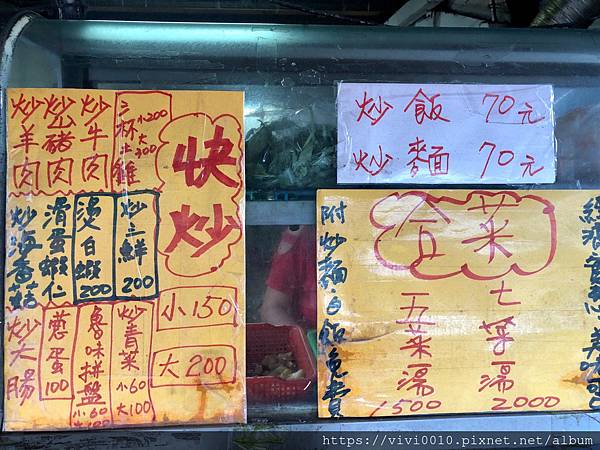 快炒
小150
大200
三杯土雞
小200
大300
炒牛肉
炒豬肉
炒羊肉
炒三鮮
200
燙白蝦
200
滑蛋蝦仁
炒海香菇
炒青菜
小60
大100
魯味拼盤
小60
大100
蔥蛋
100
炒大腸
炒飯 70元
炒麵 70元
經濟實惠 美味
合菜
七菜一湯
2000
五菜一湯
1500
附炒麵白飯免費
https://vivi0010.pixnet.net/album